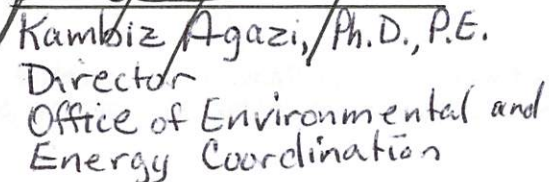 Kambiz Agazi, Ph.D., P.E.
Director
Office of Environmental and
Energy Coordination